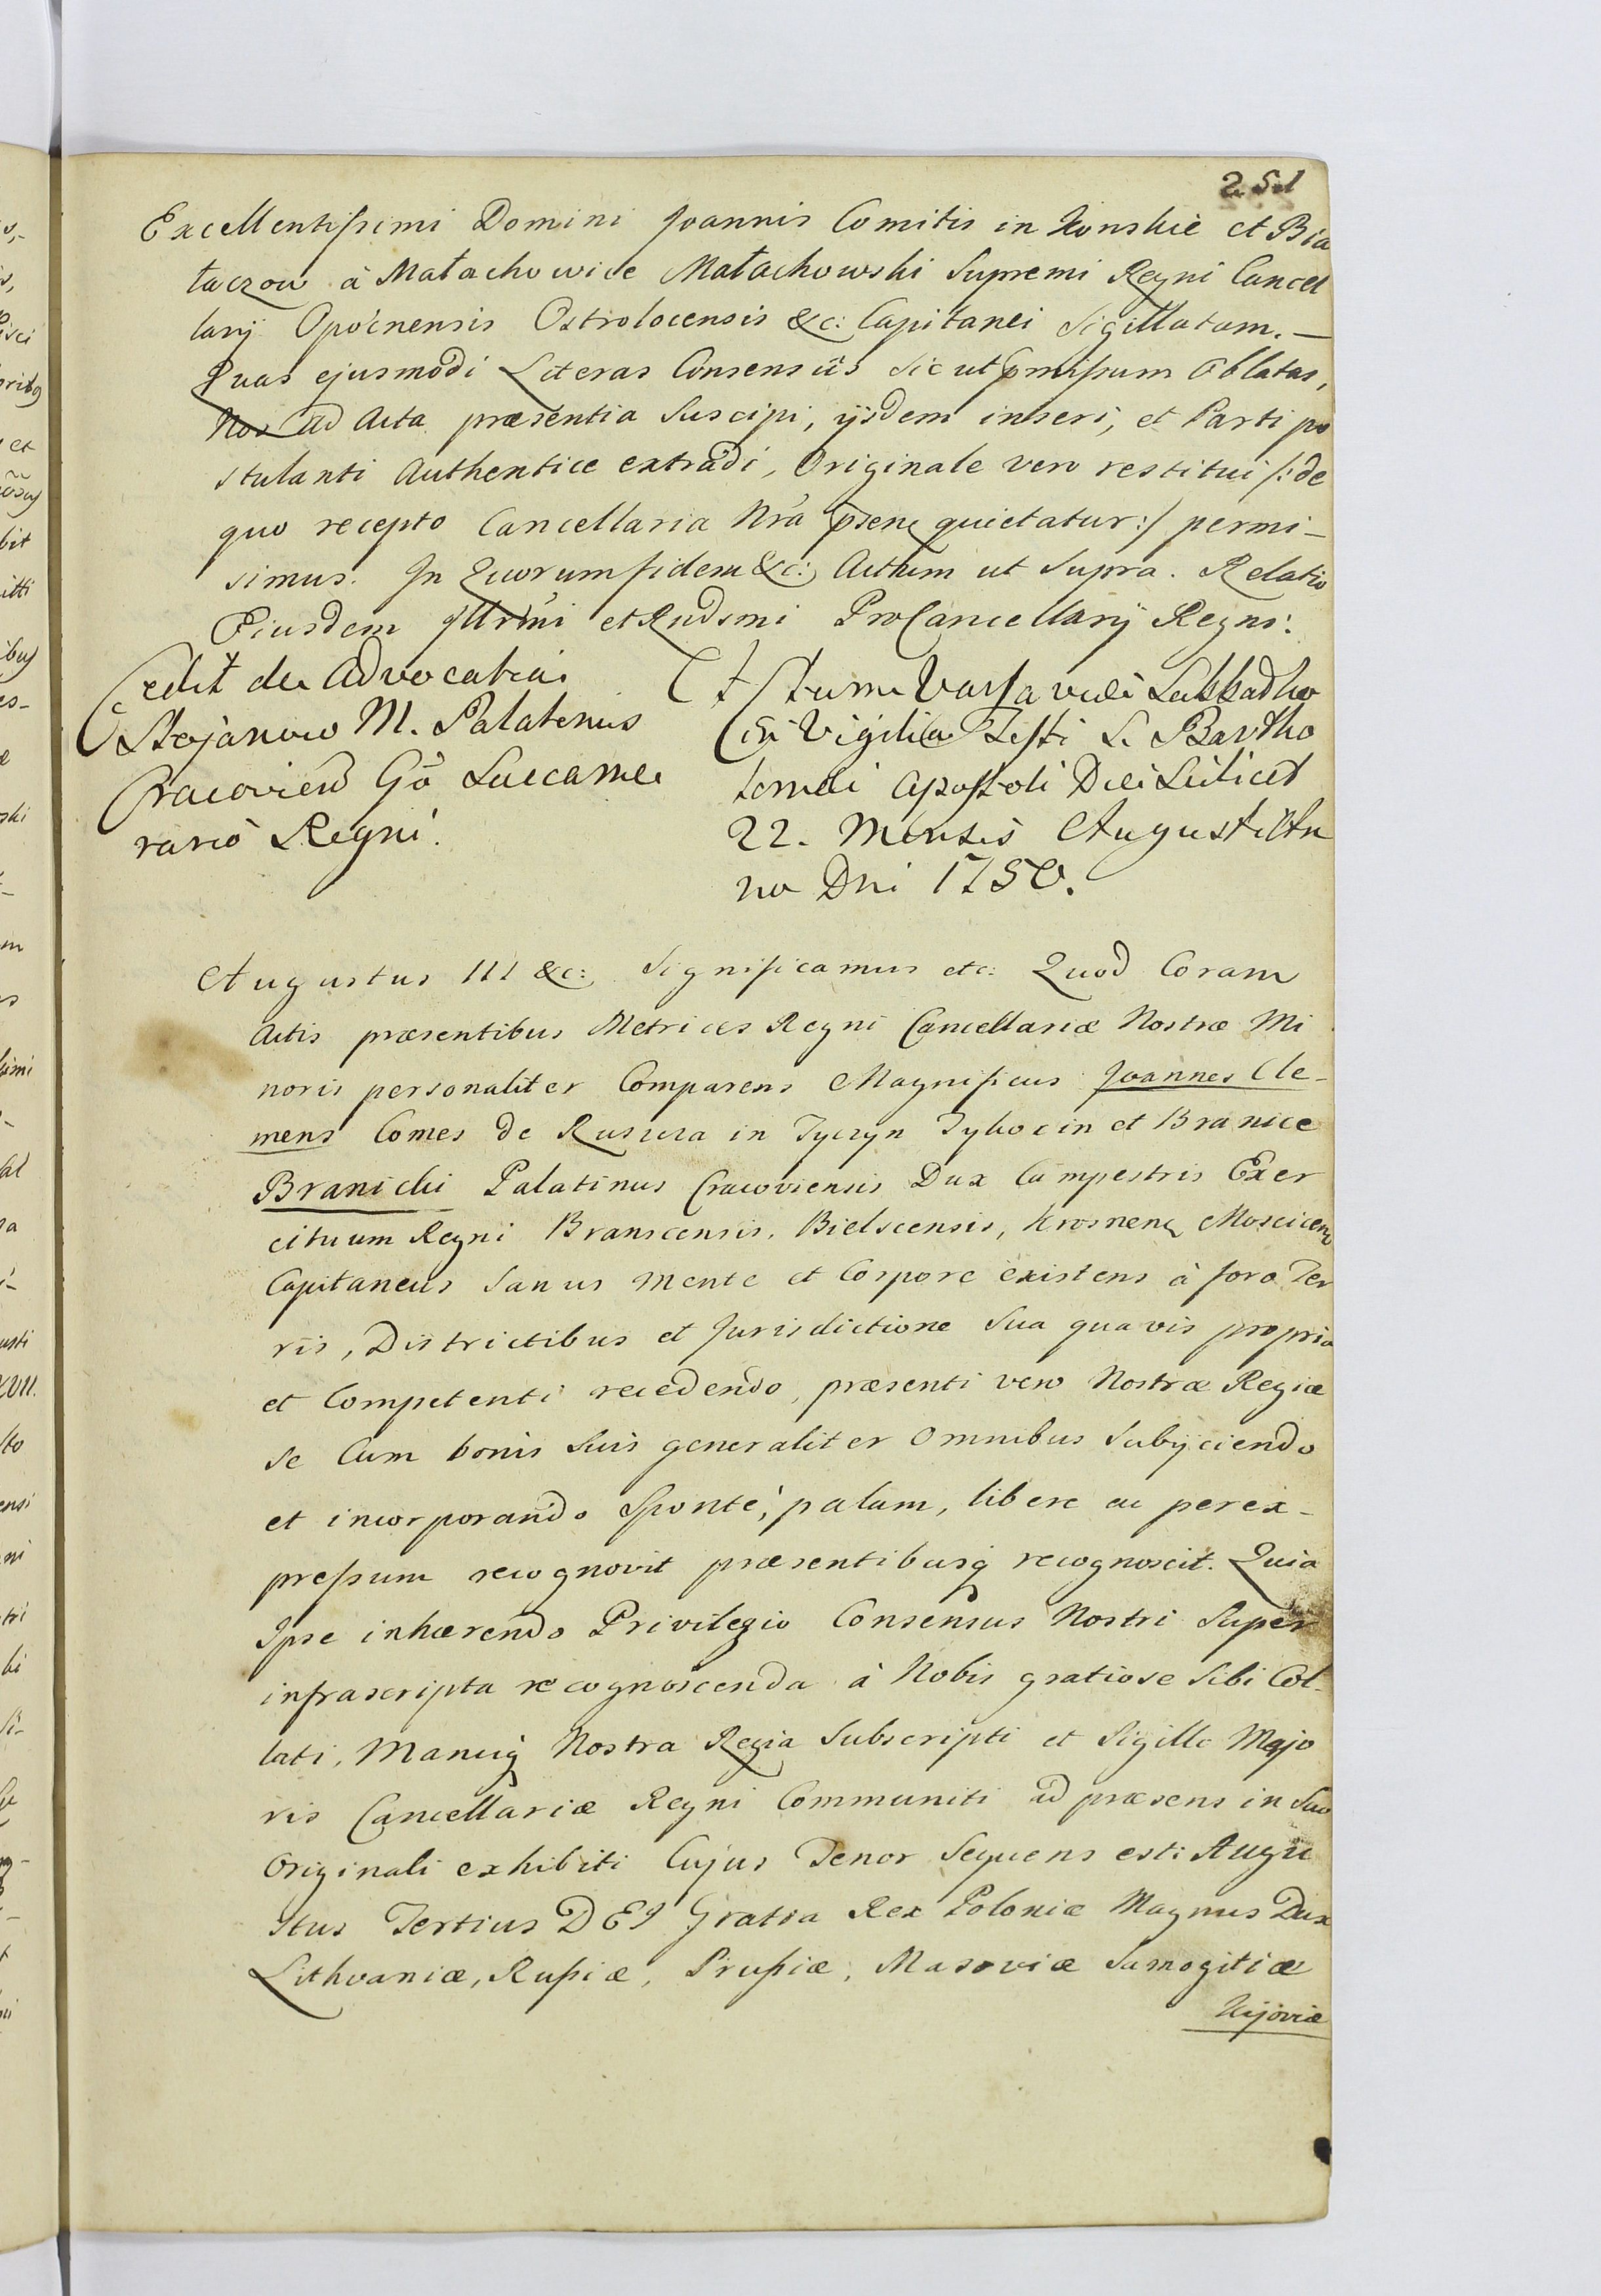 251
Excellentissimi Domini Joannis Comitis in Konskie et Bia
łaczow à Małachowice Małachowski Supremi Regni Cancel
larij Opočnensis Ostrolocensis &c: Capitanei Sigillatam. —
Quas ejusmodi Literas Consensûs sicut pmissum Oblatas,
Nos ad Acta præsentia Suscipi, ijsdem inseri, et Parti po
stulanti Authentice extradi, Originale vero restitui /: de
quo recepto Cancellaria Nra psene quietatur :/ permi-
simus. In Quorum fidem &c: Actum ut Supra. Relatio
Eiusdem Illrmi et Rndsmi ProCancellarij Regni.
Cedit de Advocatia
Stojanow M. Palatinus
Cracovien Gō Succame
rario Regni.
Actum Varsaviæ Sabbatho
in Vigilia Festi S. Bartho
lomæi Apostoli Die Scilicet
22. Mensis Augusti An
no Dni 1750.
Augustus III &c: Significamus etc: Quod Coram
Actis præsentibus Metrices Regni Cancellariæ Nostræ Mi
noris personaliter Comparens Magnificus Joannes Cle-
mens Comes de Ruszcza in Tyczyn Tykocin et Branice
Branicki Palatinus Cracoviensis Dux Campestris Exer
cituum Regni Branscensis, Bielscensis, Krosnen Moscicen
Capitaneus Sanus mente et Corpore existens à foro Ter
ris, Districtibus et Jurisdictione Sua quavis propria
et Competenti recedendo, præsenti vero Nostræ Regiæ
se Cum bonis Suis generaliter Omnibus Subijciendo
et incorporando Sponte, palam, libere ac perex-
pressum recognovit præsentibusq recognoscit. Quia
Ipse inhærendo Privilegio Consensus Nostri Super
infrascripta recognoscenda à Nobis gratiose Sibi Col-
lati, Manuq Nostra Regia Subscripti et Sigillo Majo
ris Cancellariæ Regni Communiti ad præsens in Suo
Originali exhibiti Cujus Tenor Sequens est: Augu
stus Tertius DEI Gratia Rex Poloniæ Magnus Dux
Lithvaniæ, Russiæ, Prussiæ, Masoviæ Samogitiæ
Kijoviæ